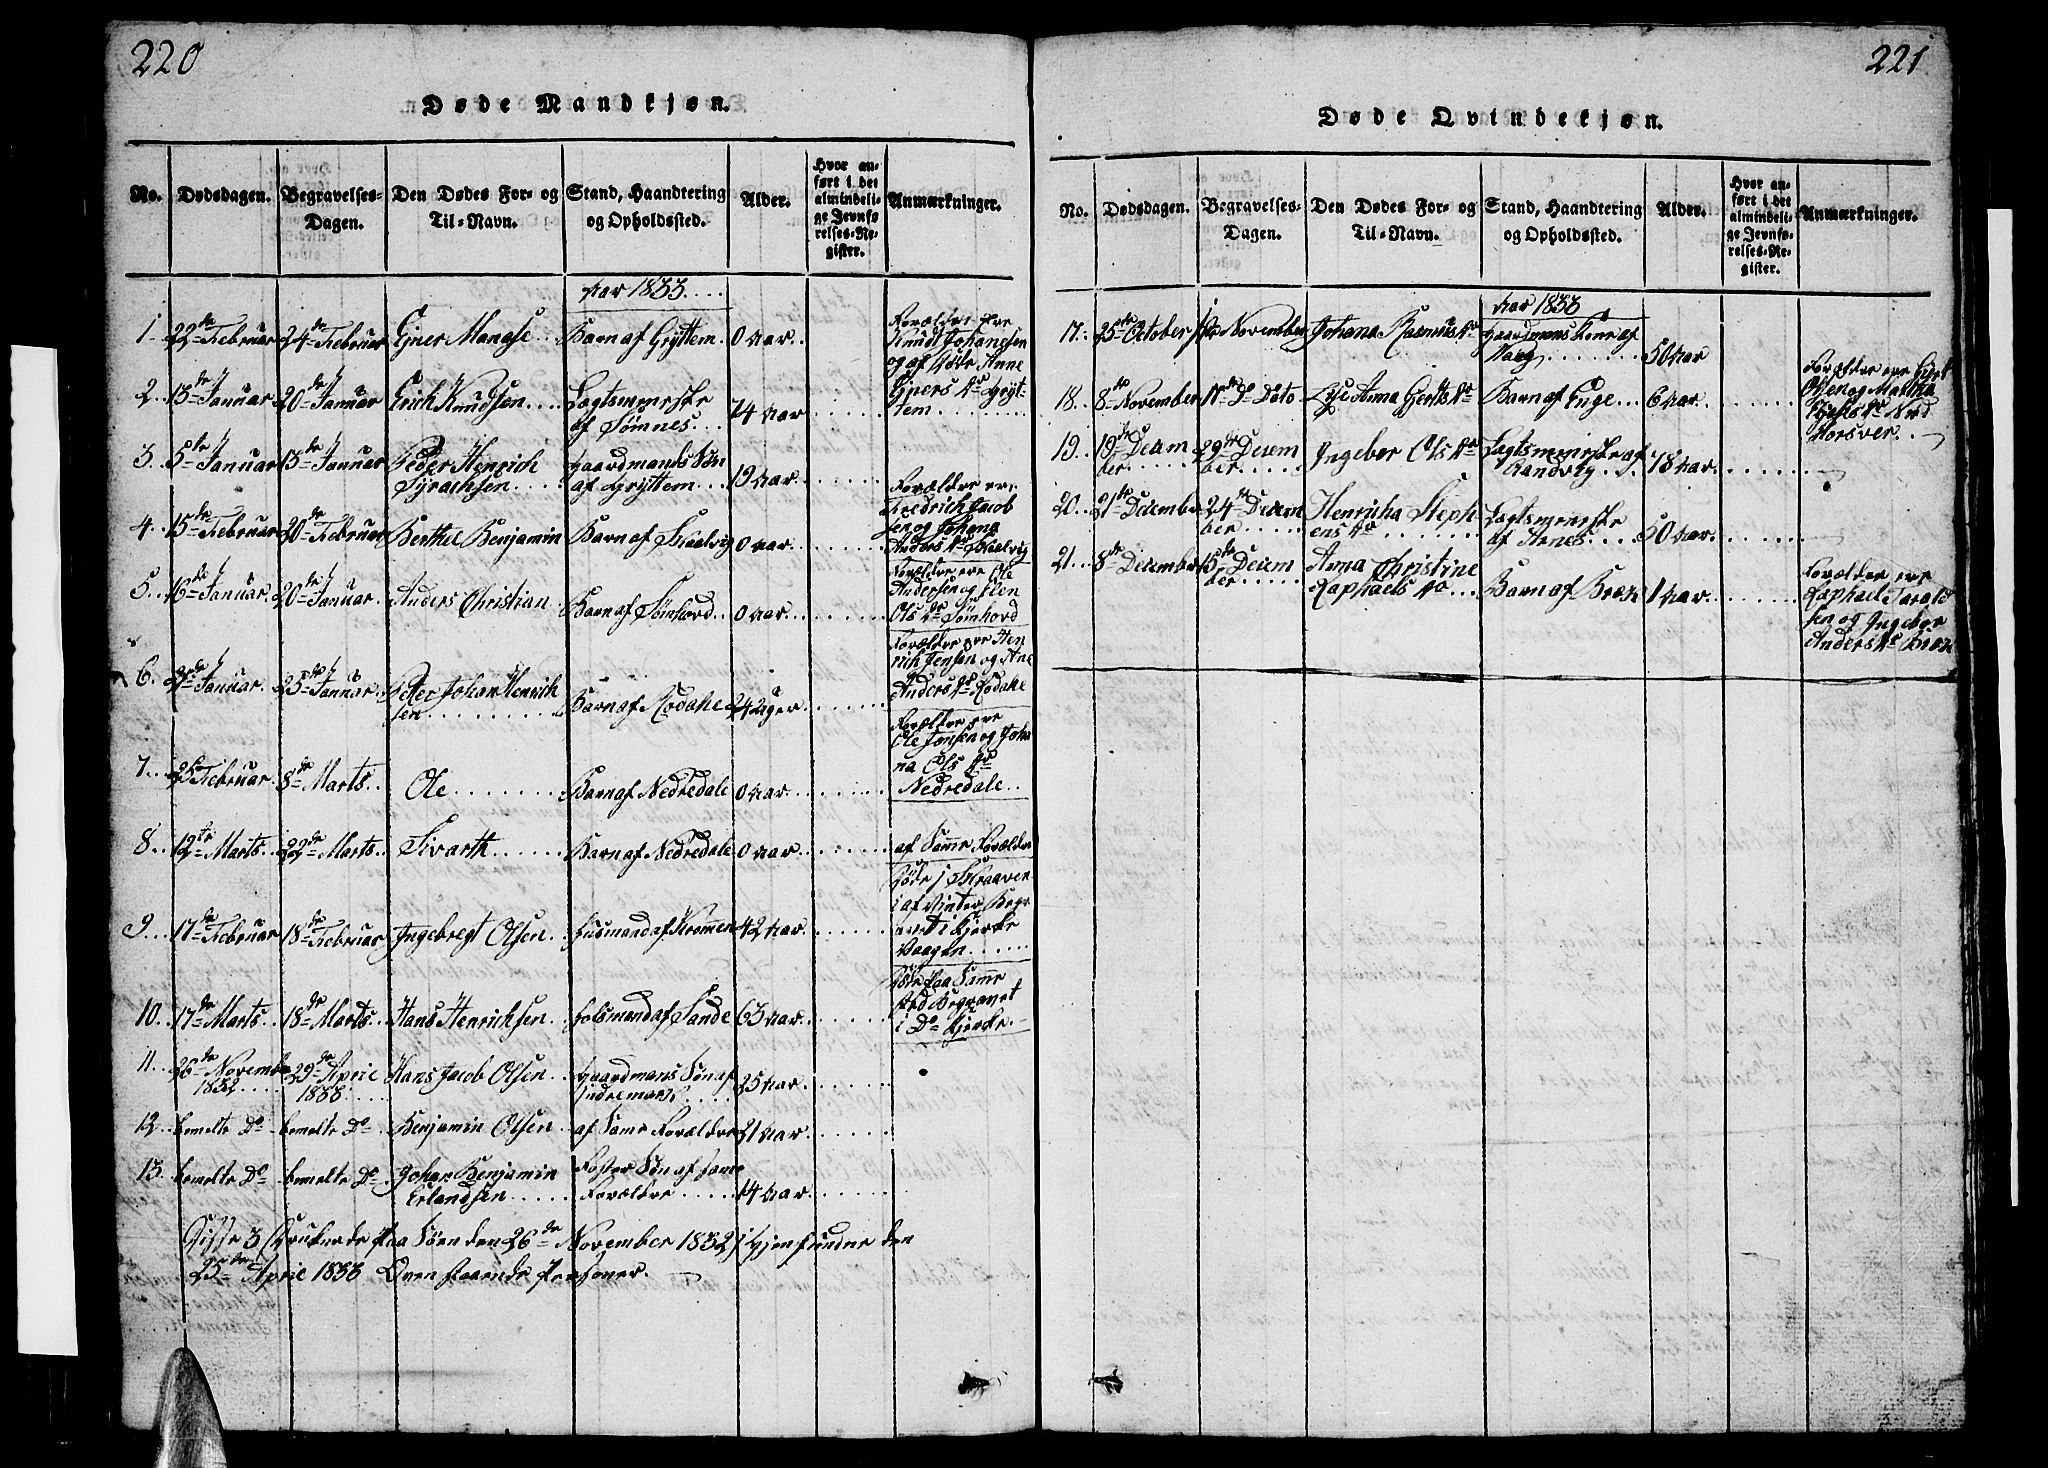 220
Døde Mandkjøn.
No. Dødsdagen. Begravelses-Dagen. Den Dødes For- og Til-Navn. Stand, Haandtering og Opholdssted. Alder. Hvor anført i det almindelige Jevnførelses-Register. Anmærkninger.
Aar 1833....
1. 22de Februar 24de Februar Ejner Manase.. Barn af Gryttem 0 Aar. Forældre ere Knud Johanesen og af Døde Anne Ejners Dr Gryttem
2. 13de Januar 20de Januar Erich Knudsen.... Lægtsmenske af Sømnes... 74 Aar
3. 5te Januar 13de Januar Peder Henrich Syrachsen.... Gaardmands Søn af Gryttem... 19 Aar
4. 15de Februar 20de Februar Berthel Benjamin Barn af Skælvig 0 Aar Forældre ere Fredrich Jacobsen og Johana Anders Dr Skælvig
5. 16de Januar 20de Januar Anders Christian Barn af Sømhord.. 0 Aar.. Forældre ere Ole Andersen og Elen Ols Dr Sømhord
6. Januar. 23de Januar. Peter Johan Henrichsen.. Barn af Rodahe 24 Uger Forældre ere Henrich Jensen og Ane Anders Dr Rodahe
7... 25 Februar. 8de Marts.. Ole....... Barn af Nedredale 0 Aar. Forældre ere Ole Jonsen og Johana Ols Dr Nedredale..
8. 12te Marts.. 22de Marts.. Sivarth...... Barn af Nedredale 0 Aar.. af Samme Forældre
9... 17de Februar 18de Februar Ingebregt Olsen.. Husmand af 42 Aar Døde i Skraaven i af Vinter Begravet i Kjerke Vaagen......
10. 17de Marts. 18de Marts.. Hans Henrichsen. af Sande 63 Aar.. Døde paa Samme Sted Begravet i Do Kjerke.
11. 26de Novembe 1832.... 29de Aprie 1833.... Hans Jacob Olsen.. Gaardmans Søn af 25 Aar.
12. bemelte Do. bemelte Do.. Benjamin Olsen.. af Same Forældre 21 Aar
13. bemelte Do bemelte Do.. Johan Benjamin Erlandsen.... Foster Søn af Same Forældre.... 14 Aar
Disse 3 Drukende paa Søen den 26de November 1832 Gjenfundne den
25de Aprie 1833 Ovenstaaende Personer.
221
Døde Qvindekjøn.
No. Dødsdagen. Begravelses-Dagen. Den Dødes For- og Til-Navn. Stand, Haandtering og Opholdssted. Alder. Hvor anført i det almindelige Jevnførelses-Register. Anmærkninger.
Aar 1833
17. 25de October November Johana Rasmus Dr Gaardmans Kone af 56 Aar
18. 8de November 17de Do Dato Lyse Anna Gierts Dr Barn af Enge.. 6 Aar. Forældre ere Giert Olsen og Martha Horsver..
19.. 19de December..... 29de December..... Ingebor Ols Dr Lægtsmenske af Sandvig.. 78 Aar
20.. 21de December 24de December..... Henricha Stephens Dr..... Lægtsmenske af Arnes... 50 Aar
21... 8de December 15de December.... Anna Christine Raphaels Dr... Barn af Bræk 1 Aar.. Forældre ere Raphael Taraldsen og Ingebor Anders Dr Bræk